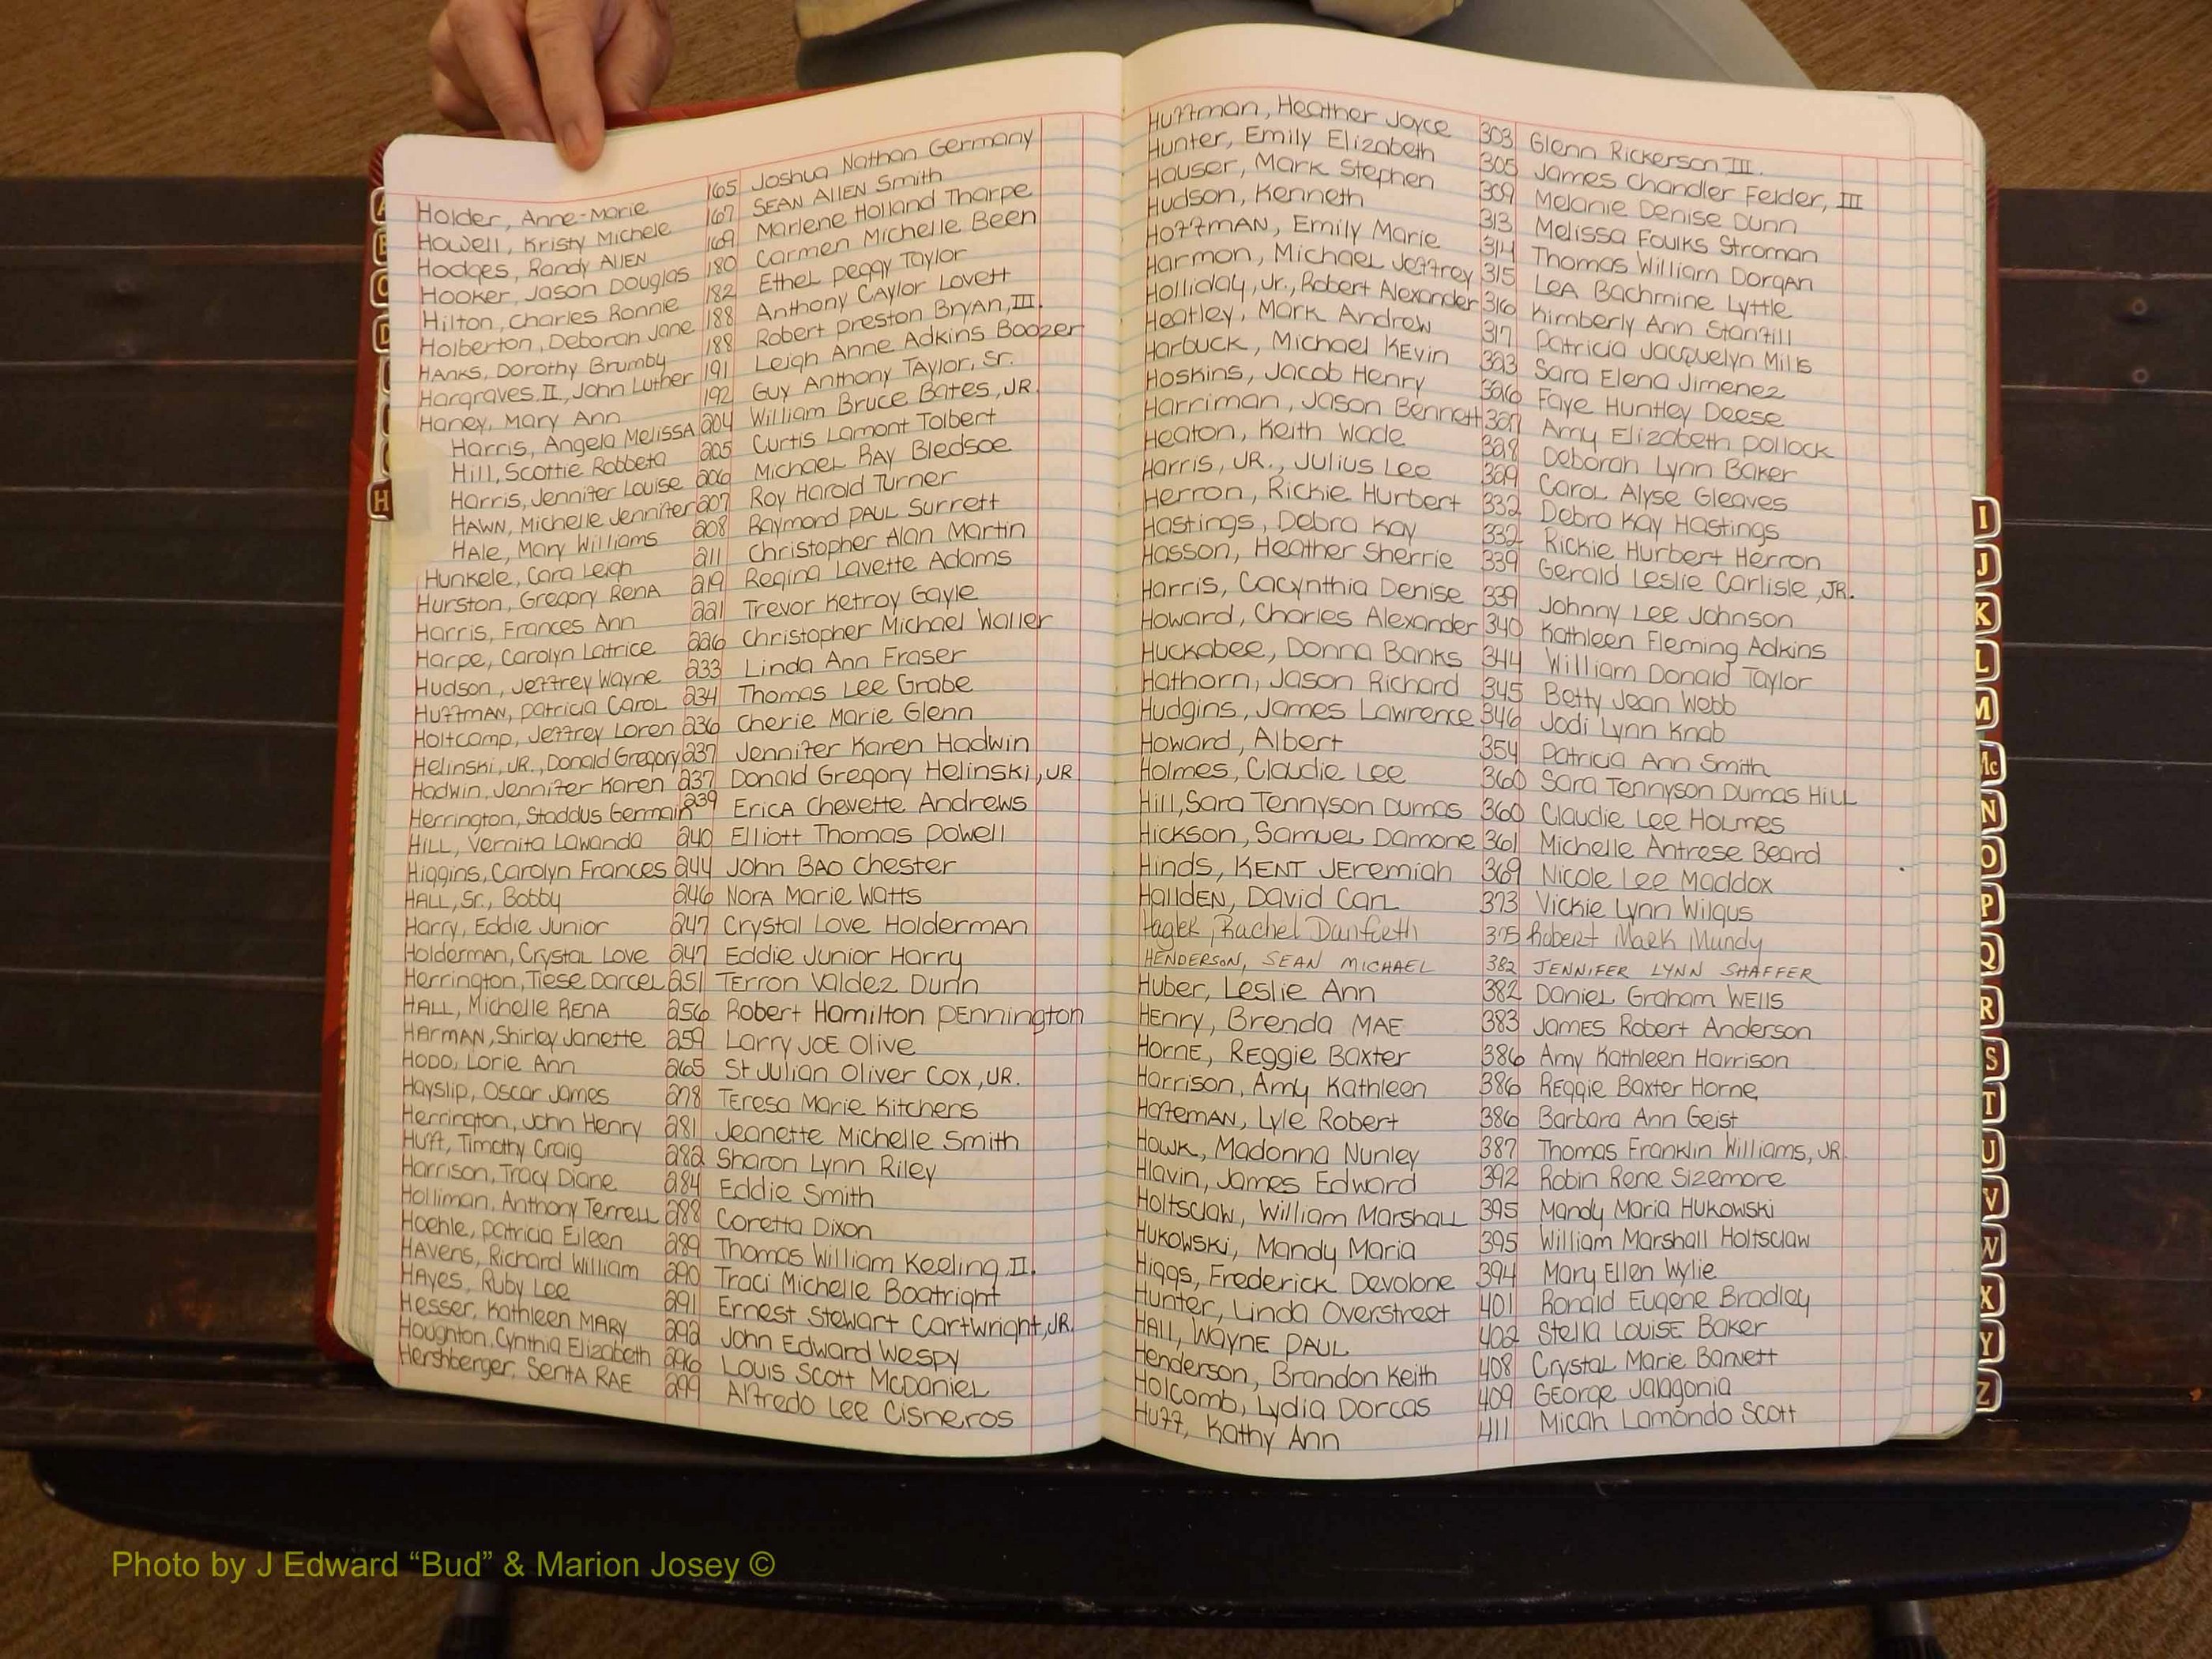 Holder, Anne-Marie 165 Joshua Nathan Germany
Howell, Kristy Michele 167 SEAN AllEN Smith
Hodges, Randy AllEN 169 Marlene Holland Tharpe
Hooker, Jason Douglas 180 Carmen Michelle Been
Hilton, Charles Ronnie 182 Ethel Peggy Taylor
Holberton, Deborah Jane 188 Anthony CAylor Lovett
HANKS, Dorothy Brumby 188 Robert Preston BryAN, III.
Hargraves II, John Luther 191 Leigh Anne Adkins Boozer
Haney, Mary Ann 192 Guy Anthony Taylor, Sr.
Harris, Angela Melissa 204 William Bruce Bates, JR.
Hill, Scottie Robbeta 205 Curtis Lamont Tolbert
Harris, Jennifer Louise 206 Michael RAy Bledsoe
HAWN, Michelle Jennifer 207 Roy Harold Turner
HAle, Mary Williams 208 Raymond PAUL Surrett
Hunkele, Cara Leigh 211 Christopher Alan Martin
Hurston, Gregory RenA 219 Regina Lavette Adams
Harris, Frances Ann 221 Trevor Ketroy Gayle
Harpe, Carolyn Latrice 226 Christopher Michael Waller
Hudson, Jeffrey Wayne 233 Linda Ann Fraser
HuffmAN, Patricia Carol 234 Thomas Lee Grabe
Holtcamp, Jeffrey Loren 236 Cherie Marie Glenn
Helinski, JR., Donald Gregory 237 Jennifer Karen Hadwin
Hadwin, Jennifer Karen 237 Donald Gregory Helinski, JR
Herrington, Staddus Germain 239 EricA Chevette Andrews
HiLL, Vernita Lawanda 240 Elliott Thomas Powell
Higgins, Carolyn Frances 244 John BAO Chester
HALL, Sr., Bobby 246 NorA Marie Watts
Harry, Eddie Junior 247 Crystal Love HoldermAn
HoldermAn, Crystal Love 247 Eddie Junior Harry
Herrington, Tiese Darcel 251 Terron Valdez Dunn
HALL, Michelle RENA 256 Robert Hamilton PENnington
HArmAN, Shirley Janette 259 Larry JOE Olive
HODO, Lorie Ann 265 St Julian Oliver Cox, JR.
Hayslip, Oscar James 278 Teresa Marie Kitchens
Herrington, John Henry 281 Jeanette Michelle Smith
Huff, Timothy Craig 282 Sharon Lynn Riley
Harrison, Tracy Diane 284 Eddie Smith
Holliman, Anthony Terrell 288 Coretta Dixon
Hoehle, Patricia Eileen 289 Thomas William Keeling, II.
HAVens, Richard William 290 Traci Michelle Boatright
HAYes, Ruby Lee 291 Ernest Stewart Cartwright, JR.
Hesser, Kathleen MARY 292 John Edward Wespy
Houghton, Cynthia Elizabeth 296 Louis Scott McDaniel
Hershberger, SentA RAE 299 Alfredo Lee Cisneros
Huffman, Heather Joyce 303 Glenn Rickerson III.
Hunter, Emily Elizabeth 305 James Chandler Felder, III
Hauser, Mark Stephen 309 Melanie Denise Dunn
Hudson, Kenneth 313 Melissa Foulks Stroman
HoffmAN, Emily Marie 314 Thomas William DorgAn
Harmon, Michael Jeffrey 315 LeA Bachmine Lyttle
Holliday, Jr., Robert Alexander 316 Kimberly Ann Stanfill
Heatley, Mark Andrew 317 Patricia Jacquelyn Mills
Harbuck, Michael KEvin 323 Sara Elena Jimenez
Hoskins, Jacob Henry 326 Faye Huntley Deese
Harriman, Jason Bennett 327 Amy Elizabeth Pollock
Heaton, Keith Wade 328 Deborah Lynn Baker
Harris, JR., Julius Lee 329 Carol Alyse Gleaves
Herron, Rickie Hurbert 332 Debra Kay Hastings
Hastings, Debra Kay 332 Rickie Hurbert Herron
Hasson, Heather Sherrie 339 Gerald Leslie Carlisle, JR.
Harris, Cacynthia Denise 339 Johnny Lee Johnson
Howard, Charles Alexander 340 Kathleen Fleming Adkins
Huckabee, Donna Banks 344 William Donald Taylor
Hathorn, Jason Richard 345 Betty Jean Webb
Hudgins, James Lawrence 346 Jodi Lynn Knab
Howard, Albert 354 Patricia Ann Smith
Holmes, Claudie Lee 360 Sara Tennyson Dumas Hill
Hill, Sara Tennyson Dumas 360 Claudie Lee Holmes
Hickson, Samuel Damone 361 Michelle Antrese Beard
Hinds, KENT JEremiah 369 Nicole Lee Maddox
HallDEN, David Carl 373 Vickie Lynn Wilgus
Rachel Danforth 375 Robert Mark Mundy
HENDERSON, SEAN MICHAEL 382 JENNIFER LYNN SHAFFER
Huber, Leslie Ann 382 Daniel Graham WEllS
HENry, Brenda MAE 383 James Robert Anderson
HornE, REggie Baxter 386 Amy Kathleen Harrison
Harrison, Amy Kathleen 386 REggie Baxter Horne
HafemAN, Lyle Robert 386 Barbara Ann Geist
HawK, Madonna Nunley 387 Thomas Franklin Williams, JR.
Hlavin, James Edward 392 Robin Rene Sizemore
Holtsclaw, William Marshall 395 Mandy Maria Hukowski
Hukowski, Mandy Maria 395 William Marshall Holtsclaw
Higgs, Frederick Devalone 394 Mary Ellen Wylie
Hunter, Linda Overstreet 401 Ronald Eugene Bradley
HAll, WAYNE PAUL 402 Stella LouisE Baker
Henderson, Brandon Keith 408 Crystal Marie Barnett
Holcomb, Lydia Dorcas 409 GEorge Jalagonia
Huff, Kathy Ann 411 Micah Lamondo Scott
H
I
J
K
L
M
Mc
N
O
P
Q
R
S
T
U
V
W
X
Y
Z
Photo by J Edward “Bud” & Marion Josey ©